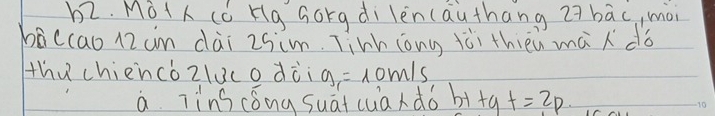 b2. Một x có klg 60kg đi lên cầu thang 27 bậc, mỗi
bậc cao 12 cm dài 25cm. Tính công tối thiểu mà x đó
thự chiencó 2 lực o đổi g = 10m/s
a. Tính công suất của x đó bt tg t = 2p.